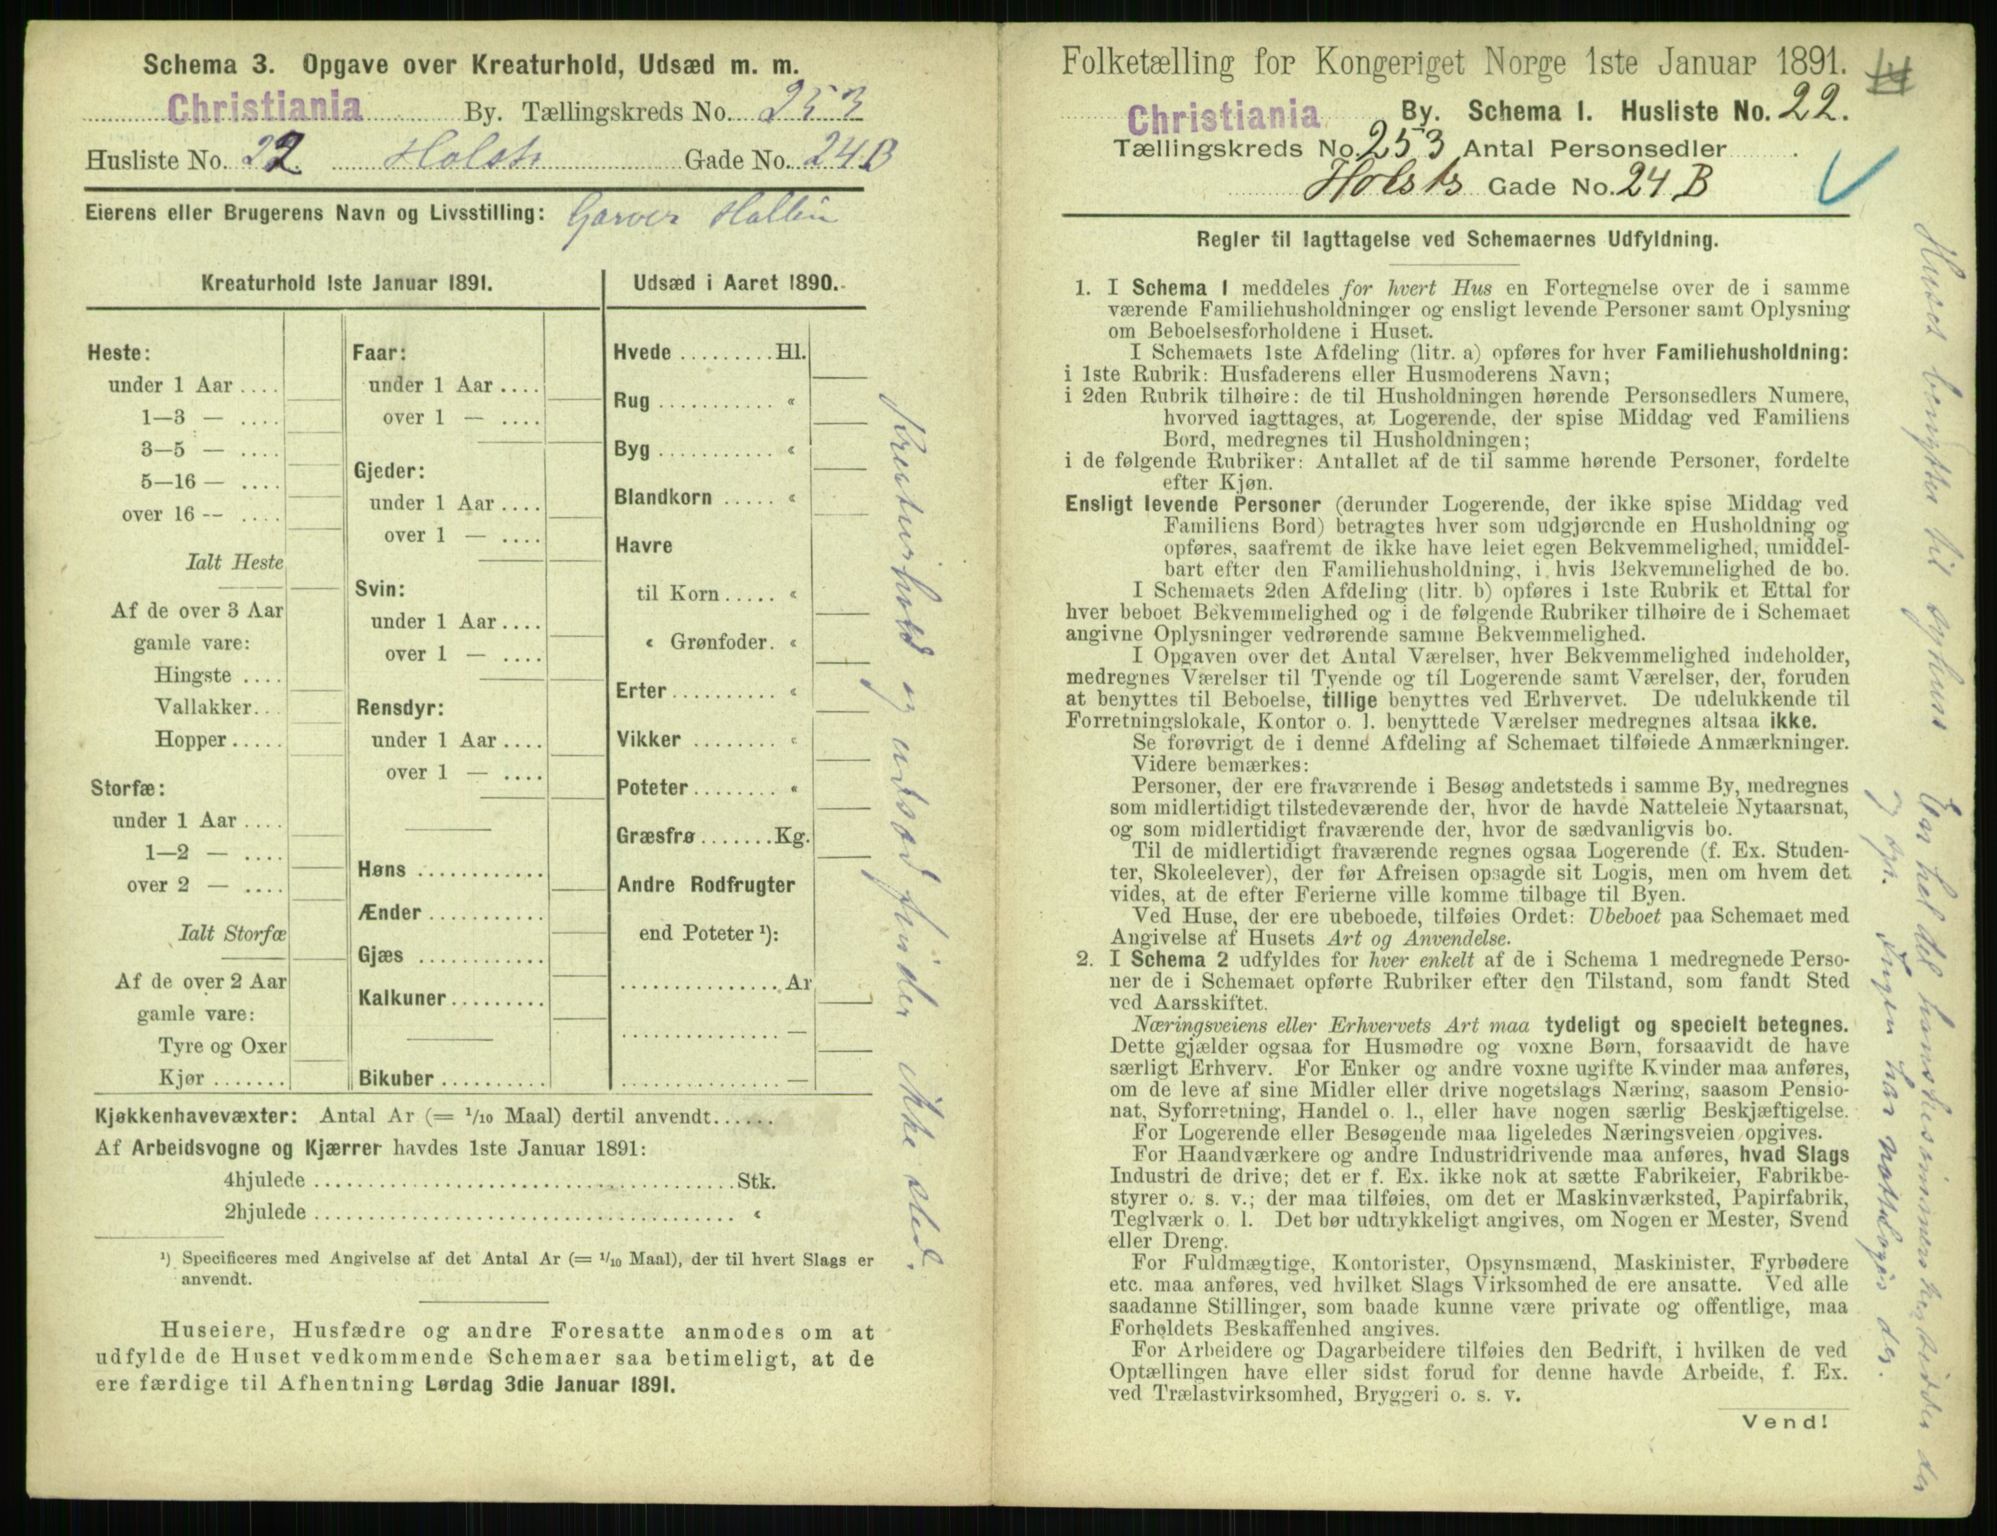 Schema 3. Opgave over Kreaturhold, Udsæd m. m.
Christiania By. Tællingskreds No. 253
Husliste No. 22. Holsts Gade No. 24B
Eierens eller Brugerens Navn og Livsstilling: Garver Hallin
Kreaturhold 1ste Januar 1891.
Heste:
under 1 Aar ....
1—3 — ....
3—5 — ....
5—16 — ....
over 16 -- ....
Ialt Heste
Af de over 3 Aar
gamle vare:
Hingste ....
Vallakker...
Hopper.....
Storfæ:
under 1 Aar ....
1—2 — ....
over 2 — ....
Ialt Storfæ
Af de over 2 Aar
gamle vare:
Tyre og Oxer
Kjør .......
Faar:
under 1 Aar ....
over 1 — ....
Gjeder:
under 1 Aar ....
over 1 — ....
Svin:
under 1 Aar ....
over 1 — ....
Rensdyr:
under 1 Aar ....
over 1 — ....
Høns ............
Ænder ...........
Gjæs ............
Kalkuner.........
Bikuber ..........
Udsæd i Aaret 1890.
Hvede .........Hl.
Rug ........... «
Byg ........... «
Blandkorn ..... «
Havre
til Korn ..... «
« Grønfoder. «
Erter.......... «
Vikker ........ «
Poteter ........ «
Græsfrø .......Kg.
Andre Rodfrugter
end Poteter ¹):
...............Ar
............... —
............... —
Kreaturhold og udsæd finder ikke sted.
Kjøkkenhavevæxter: Antal Ar (= 1/10 Maal) dertil anvendt......
Af Arbeidsvogne og Kjærrer havdes 1ste Januar 1891:
4hjulede ..................................Stk.
2hjulede .................................. «
¹) Specificeres med Angivelse af det Antal Ar (= 1/10 Maal), der til hvert Slags er
anvendt.
Huseiere, Husfædre og andre Foresatte anmodes om at
udfylde de Huset vedkommende Schemaer saa betimeligt, at de
ere færdige til Afhentning Lørdag 3die Januar 1891.
Folketælling for Kongeriget Norge 1ste Januar 1891.
Christiania By. Schema I. Husliste No. 22.
Tællingskreds No. 253 Antal Personsedler .
Holsts Gade No. 24 B
Regler til Iagttagelse ved Schemaernes Udfyldning.
1. I Schema I meddeles for hvert Hus en Fortegnelse over de i samme
værende Familiehusholdninger og ensligt levende Personer samt Oplysning
om Beboelsesforholdene i Huset.
I Schemaets 1ste Afdeling (litr. a) opføres for hver Familiehusholdning:
i 1ste Rubrik: Husfaderens eller Husmoderens Navn;
i 2den Rubrik tilhøire: de til Husholdningen hørende Personsedlers Numere,
hvorved iagttages, at Logerende, der spise Middag ved Familiens
Bord, medregnes til Husholdningen;
i de følgende Rubriker: Antallet af de til samme hørende Personer, fordelte
efter Kjøn.
Ensligt levende Personer (derunder Logerende, der ikke spise Middag ved
Familiens Bord) betragtes hver som udgjørende en Husholdning og
opføres, saafremt de ikke have leiet egen Bekvemmelighed, umiddel-
bart efter den Familiehusholdning, i hvis Bekvemmelighed de bo.
I Schemaets 2den Afdeling (litr. b) opføres i 1ste Rubrik et Ettal for
hver beboet Bekvemmelighed og i de følgende Rubriker tilhøire de i Schemaet
angivne Oplysninger vedrørende samme Bekvemmelighed.
I Opgaven over det Antal Værelser, hver Bekvemmelighed indeholder,
medregnes Værelser til Tyende og til Logerende samt Værelser, der, foruden
at benyttes til Beboelse, tillige benyttes ved Erhvervet. De udelukkende til
Forretningslokale, Kontor o. l. benyttede Værelser medregnes altsaa ikke.
Se forøvrigt de i denne Afdeling af Schemaet tilføiede Anmærkninger.
Videre bemærkes:
Personer, der ere fraværende i Besøg andetsteds i samme By, medregnes
som midlertidigt tilstedeværende der, hvor de havde Natteleie Nytaarsnat,
og som midlertidigt fraværende der, hvor de sædvanligvis bo.
Til de midlertidigt fraværende regnes ogsaa Logerende (f. Ex. Studen-
ter, Skoleelever), der før Afreisen opsagde sit Logis, men om hvem det
vides, at de efter Ferierne ville komme tilbage til Byen.
Ved Huse, der ere ubeboede, tilføies Ordet: Ubeboet paa Schemaet med
Angivelse af Husets Art og Anvendelse.
2. I Schema 2 udfyldes for hver enkelt af de i Schema 1 medregnede Perso-
ner de i Schemaet opførte Rubriker efter den Tilstand, som fandt Sted
ved Aarsskiftet.
Næringsveiens eller Erhvervets Art maa tydeligt og specielt betegnes.
Dette gjælder ogsaa for Husmødre og voxne Børn, forsaavidt de have
særligt Erhverv. For Enker og andre voxne ugifte Kvinder maa anføres,
om de leve af sine Midler eller drive nogetslags Næring, saasom Pensio-
nat, Syforretning, Handel o. l., eller have nogen særlig Beskjæftigelse.
For Logerende eller Besøgende maa ligeledes Næringsveien opgives.
For Haandværkere og andre Industridrivende maa anføres, hvad Slags
Industri de drive; det er f. Ex. ikke nok at sætte Fabrikeier, Fabrikbe-
styrer o. s. v.; der maa tilføies, om det er Maskinværksted, Papirfabrik,
Teglværk o. l. Det bør udtrykkeligt angives, om Nogen er Mester, Svend
eller Dreng.
For Fuldmægtige, Kontorister, Opsynsmænd, Maskinister, Fyrbødere
etc. maa anføres, ved hvilket Slags Virksomhed de ere ansatte. Ved alle
saadanne Stillinger, som baade kunne være private og offentlige, maa
Forholdets Beskaffenhed angives.
For Arbeidere og Dagarbeidere tilføies den Bedrift, i hvilken de ved
Optællingen have eller sidst forud for denne havde Arbeide, f. Ex.
ved Trælastvirksomhed, Bryggeri o. s. v.
Vend!
14
Huset benyttes til syhus. En hel del hanskesømmersker sidder der
og syr. Ingen har nattelogis der.